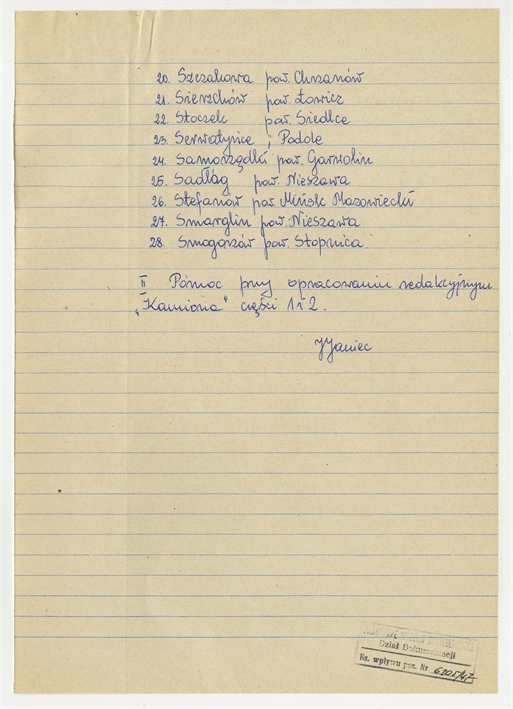 20. Szczakowa pow. Chrzanów
21. Sierzchów pow. Łowicz
22. Stoczek pow. Siedlce
23. Serwatyńce, Podole
24. Samorządki pow. Garwolin
25. Sadłóg pow. Nieszawa
26. Stefanów pow. Mińsk Mazowiecki
27. Smarglin pow. Nieszawa
28. Smogorzów pow. Stopnica.
II Pomoc przy opracowaniu redakcyjnym
"Kamiona" części 1 i 2.
JJaniec
Dział Dokumentacji
Ks. wpływu poz. Nr